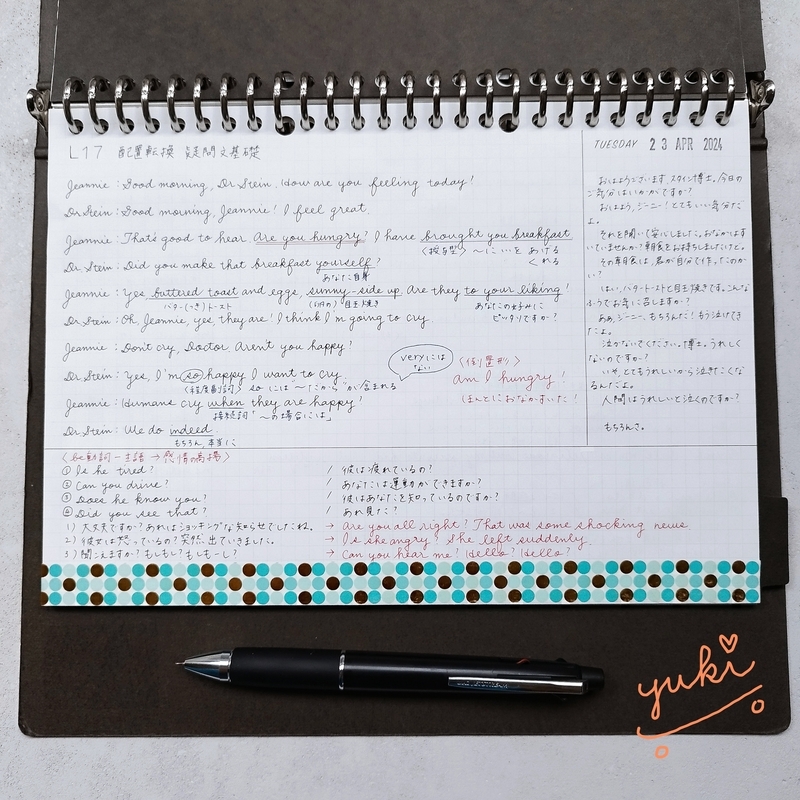 L17 配置転換 疑問文基礎
TUESDAY 23 APR 2024
Jeannie : Good morning, Dr Stein. How are you feeling today?
Dr Stein : Good morning, Jeannie! I feel great.
Jeannie : That's good to hear. Are you hungry? I have brought you breakfast.
〈授与型〉 〜に…をあげる
くれる
Dr Stein : Did you make that breakfast yourself?
あなた自身
Jeannie : Yes, buttered toast and eggs, sunny-side up. Are they to your liking?
バター(つき)トースト (卵の)目玉焼き あなたの好みに
ピッタリですか?
Dr Stein : Oh, Jeannie, yes, they are! I think I'm going to cry.
Jeannie : Don't cry, Doctor. Aren't you happy?
Dr Stein : Yes, I'm so happy I want to cry.
〈程度副詞〉 so には〜"だから"が含まれる
veryには
ない
〈倒置形〉
am I hungry!
(ほんとにおなかすいた!
Jeannie : Humans cry when they are happy?
接続詞「〜の場合には」
Dr Stein : We do indeed.
もちろん, 本当に
おはようございます、スタイン博士。今日の
ご気分はいかがですか?
おはよう、ジーニー!とてもいい気分だ
よ。
それを聞いて安心しました。おなかはす
いていませんか?朝食をお持ちしましたけど。
その朝食は、君が自分で作ったのか
い?
はい、バタートーストと目玉焼きです。こんな
ふうでお気に召しますか?
ああ、ジーニー、もちろんだ!もう泣けてき
たよ。
泣かないでください、博士。うれしく
ないのですか?
いいや、とてもうれしいから泣きたくな
るんだよ。
人間はうれしいと泣くのですか?
もちろんさ。
〈be動詞−主語 → 感情の高揚〉
① Is he tired? / 彼は疲れているの?
② Can you drive? / あなたは運動ができますか?
③ Does he know you? / 彼はあなたを知っているのですか?
④ Did you see that? / あれ見た?
1) 大丈夫ですか?あれはショッキングな知らせでしたね。 → Are you all right? That was some shocking news.
2) 彼女は怒っているの?突然、出ていきました。 → Is she angry? She left suddenly.
3) 聞こえますか?もしもし?もしもーし? → Can you hear me? Hello? Hello?
yuki